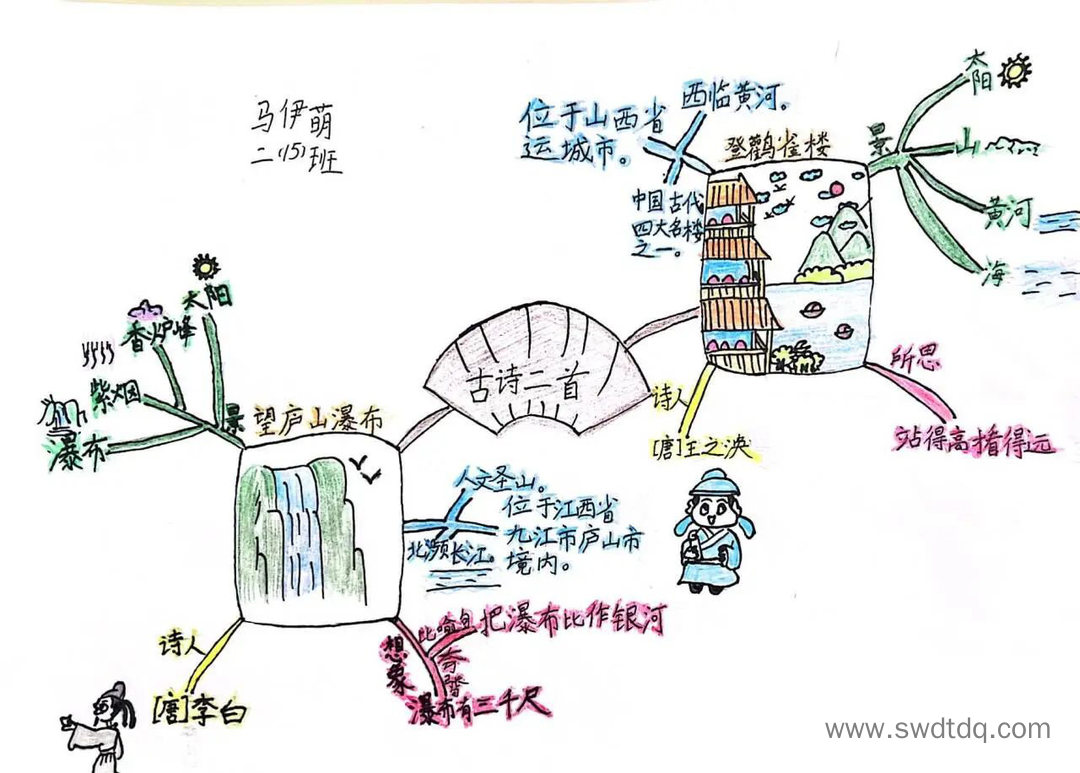 马伊萌
二(15)班
古诗二首
登鹳雀楼
位于山西省
运城市。
西临黄河。
中国古代
四大名楼
之一。
景
太阳
山
黄河
海
所思
站得高看得远
诗人
[唐]王之泱
望庐山瀑布
景
太阳
香炉峰
紫烟
瀑布
人文圣山。
位于江西省
九江市庐山市
境内。
北濒长江。
想象
比喻句
把瀑布比作银河
夸
瀑布有三千尺
诗人
[唐]李白
www.swdtdq.com